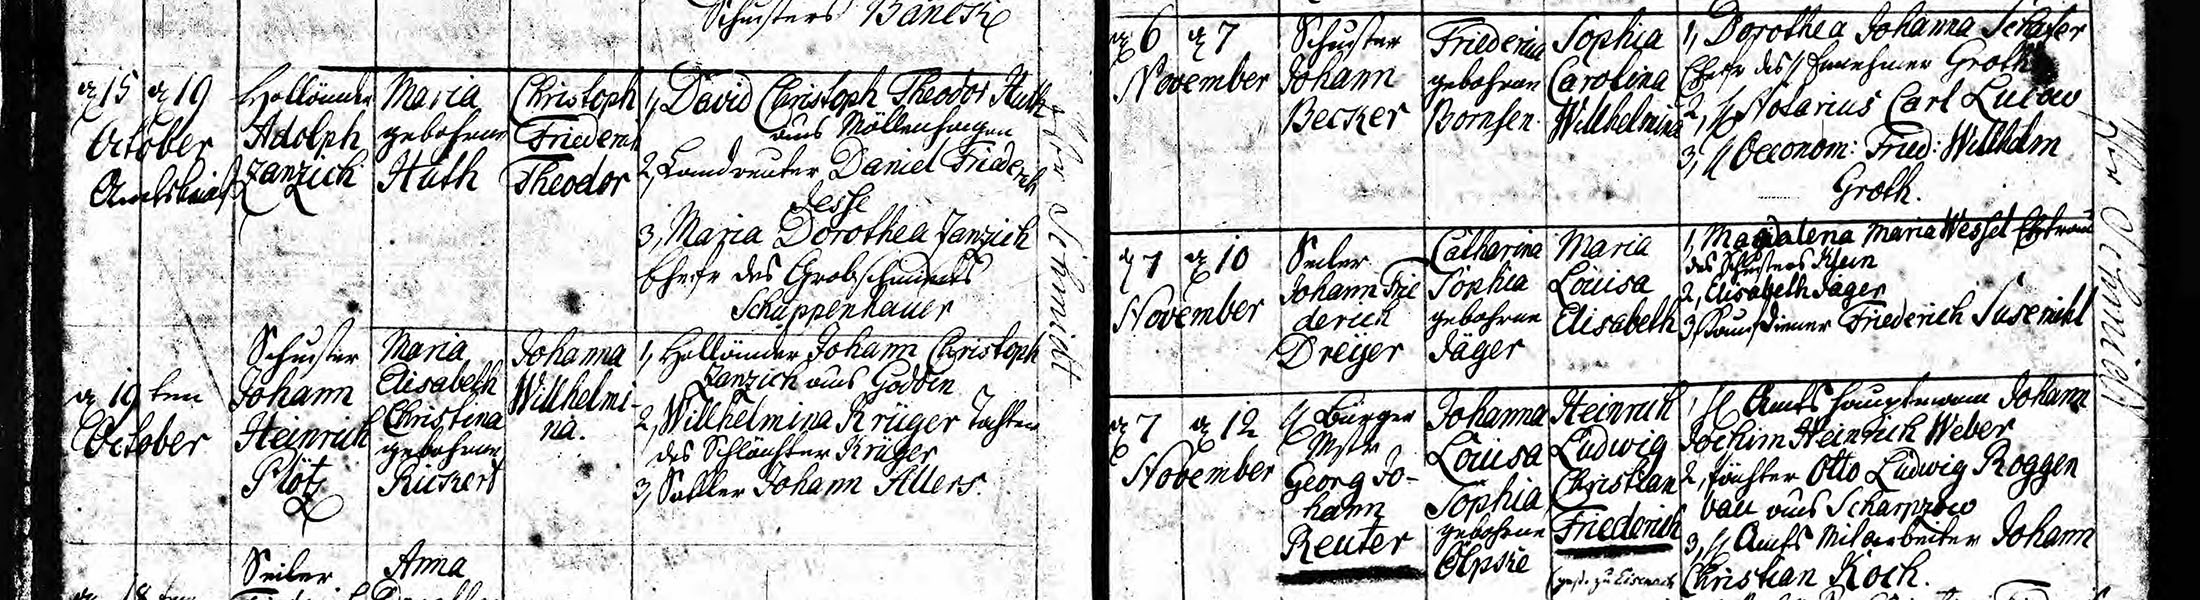 Schusters Bänckj
d 15 d 19
October
Holländer
Adolph
Janzick
Maria
gebohrne
Huth
Christoph
Friederi
Theodor
1, David Christoph Theodor Huth
aus Möllenhagen
2, Landreuter Daniel Friederich
Jesse
3, Maria Dorothea Janzick
Ehefr des Grobschmieds
Schuppenhauer
d 19 ten
October
Schuster
Johann
Heinrich
Plötz
Maria
Elisabeth
Christina
gebohrne
Rickert
Johanna
Willhelmi-
na.
1, Holländer Johann Christoph
Janzick aus Godden
2, Willhelmina Krüger Tochter
des Schlächter Krüger
3, Sattler Johann Allers.
Seiler
Anna
Schmidt
d 6 d 7
November
Schuster
Johann
Becker
Friederica
gebohrne
Bornsen
Sophia
Carolina
Willhelmina
1, Dorothea Johanna Schäfer
Ehefr des H Einnehmer Groth
2, H Notarius Carl Lucow
3, H Oeconom: Fried: Willhelm
Groth.
d 7 d 10
November
Seiler
Johann Frie
derich
Dreyer
Catharina
Sophia
gebohrne
Jäger
Maria
Louisa
Elisabeth
1, Magdalena Maria Wessel Ehefrau
des Schusters Klein
2, Elisabeth Jäger
3, Hausdiener Friederich Susemihl
d 7 d 12
November
H Bürger
Mstr
Georg Jo-
hann
Reuter
Johanna
Louisa
Sophia
gebohrne
Ölpke
Heinrich
Ludwig
Christian
Friederich
(gest. zu Eisenach
1, H Amts Hauptmann Johann
Jochim Heinrich Weber
2, Pächter Otto Ludwig Roggen
bau aus Scharpzow
3, H Amts Mitarbeiter Johann
Christian Koch.
Schmidt